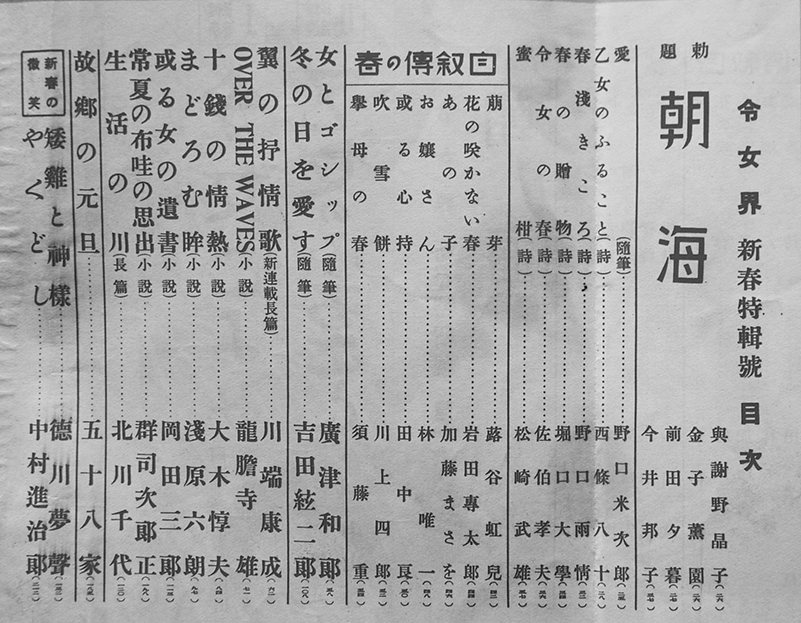 令女界 新春特輯號 目次
與謝野晶子
金子薰園
勅題 朝海 前田夕暮
今井邦子
愛(隨筆)野口米次郎
乙女のふること(詩)西條八十
春淺きころ(詩)野口雨情
春の贈物(詩)堀口大學
令女の春(詩)佐伯孝夫
蜜柑(詩)松崎武雄
自叙傳の春
萠芽 蕗谷虹兒
花の咲かない春 岩田專太郎
あの子 加藤まさを
お孃さん 林唯一
或る心持 田中良
吹雪餠 川上四郎
擧母の春 須藤重
女とゴシップ(隨筆)廣津和郎
冬の日を愛す(隨筆)吉田絃二郎
翼の抒情歌(新連載長篇)川端康成
OVER THE WAVES(小說)龍膽寺雄
十錢の情熱(小說)大木惇夫
まどろむ眸(小說)淺原六朗
或る女の遺書(小說)岡田三郎
常夏の布哇の思出(小說)群司次郎正
生活の川(長篇)北川千代
故鄕の元旦 五十八家
新春の微笑
矮雞と神樣 德川夢聲
やくどし 中村進治郎